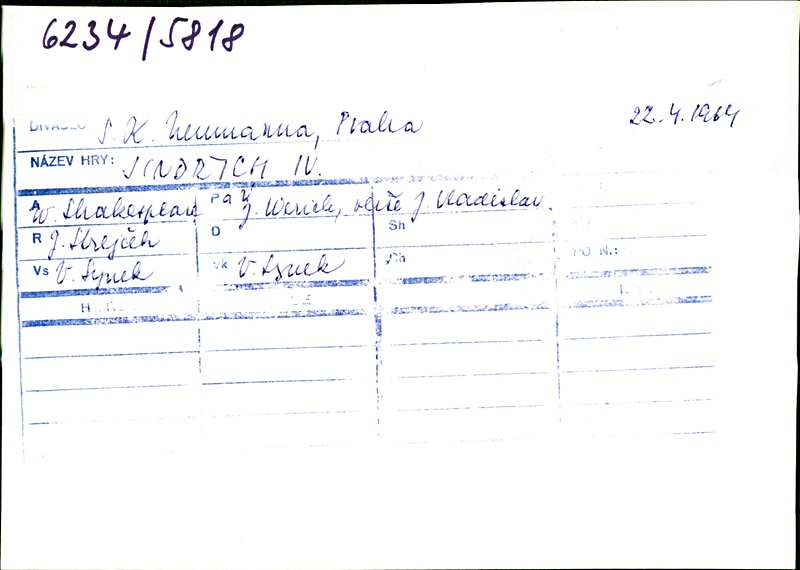 6234/5818
22.4.1964
DIVADLO S. K. Neumanna, Praha
NÁZEV HRY: JINDŘICH IV.
A W. Shakespeare P a ú J. Werich, verše J. Vladislav.
R J. Strejček D Sh
Vs V. Synek Vk V. Synek Ch PO N.: